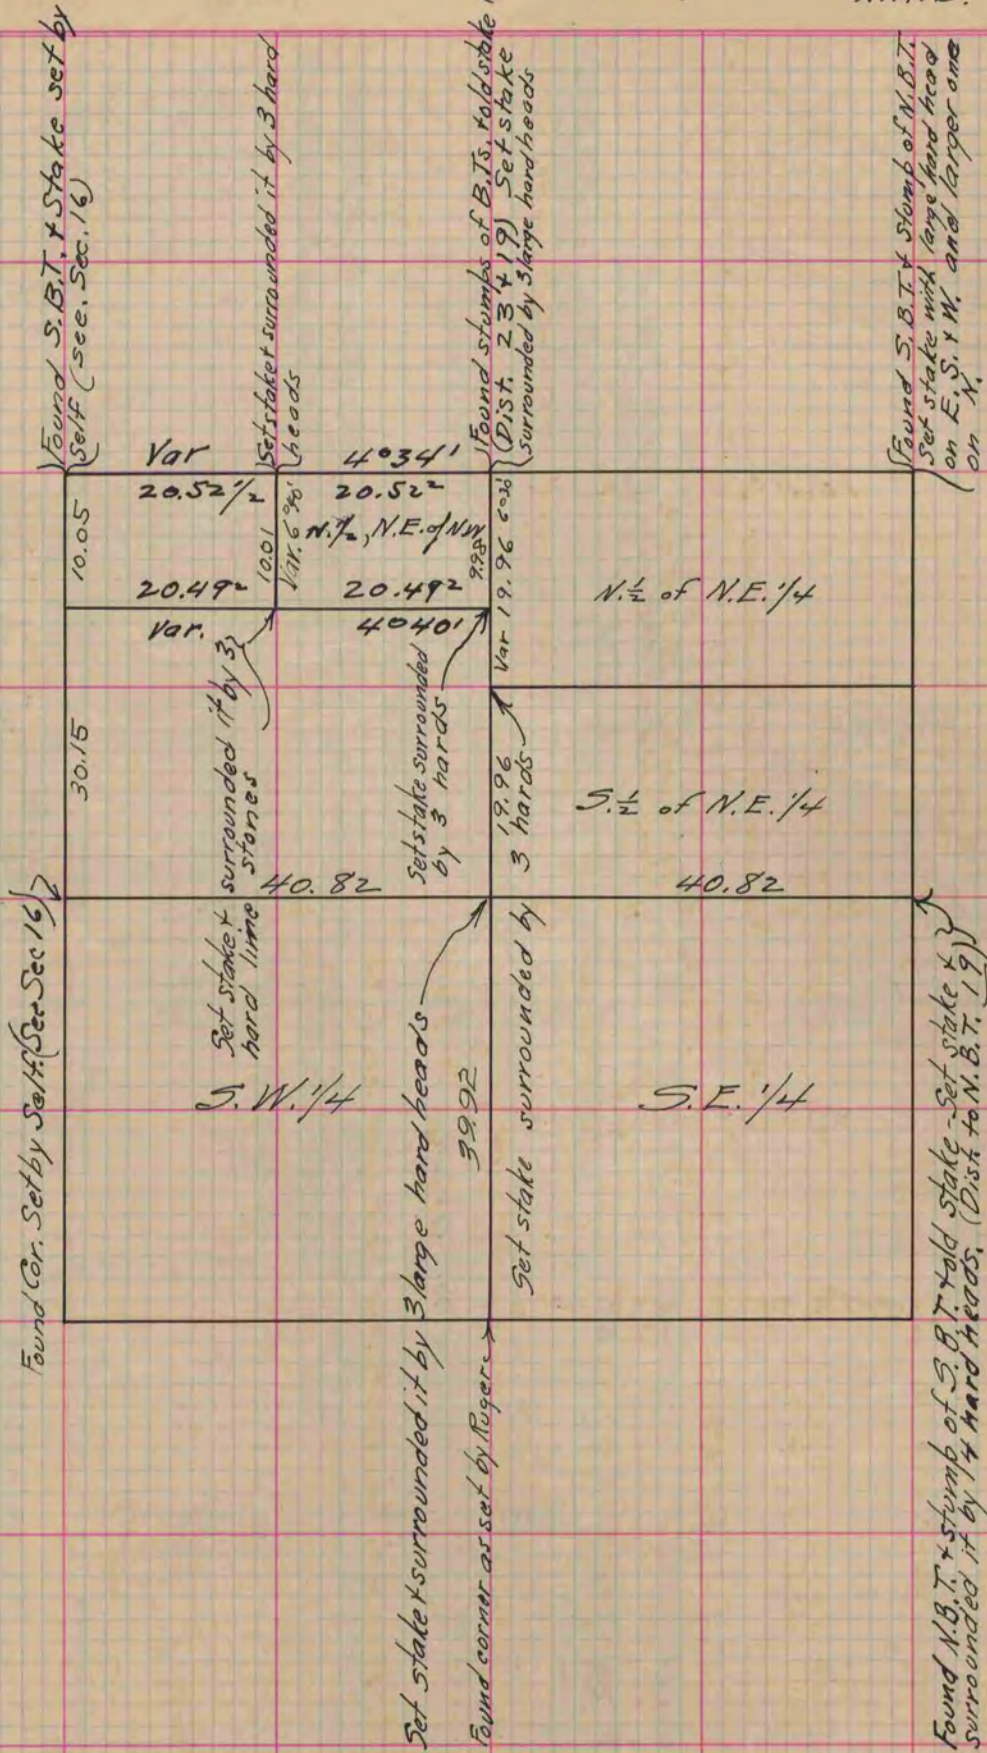 Found S.B.T. & Stake set by
Self (see. Sec. 16)
Set stake & surrounded it by 3 hard
heads
Found stumps of B.Ts. & old stake
(Dist. 23 & 19) Set stake
surrounded by 3 large hard heads
Found S.B.T. & Stump of N.B.T.
Set stake with large hard head
on E. S. & W. and larger one
on N.
Var
4°34'
20.52 1/2
20.52²
10.05
10.01
Var. 6°40'
N. 1/2, N.E. of NW
9.98
Var 19.96 6°30'
20.49²
20.49²
Var.
4°40'
N. 1/2 of N.E. 1/4
30.15
Set stake & surrounded it by 3
hard lime stones
Set stake surrounded
by 3 hards
19.96
3 hards
S. 1/2 of N.E. 1/4
40.82
40.82
Found Cor. Set by Self. (See Sec 16)
S.W. 1/4
39.92
S.E. 1/4
Set stake surrounded by
Set stake & surrounded it by 3 large hard heads
Found corner as set by Ruger
Found N.B.T. & stump of S.B.T. & old stake - Set stake &
surrounded it by 4 hard heads. (Dist. to N.B.T. 19)